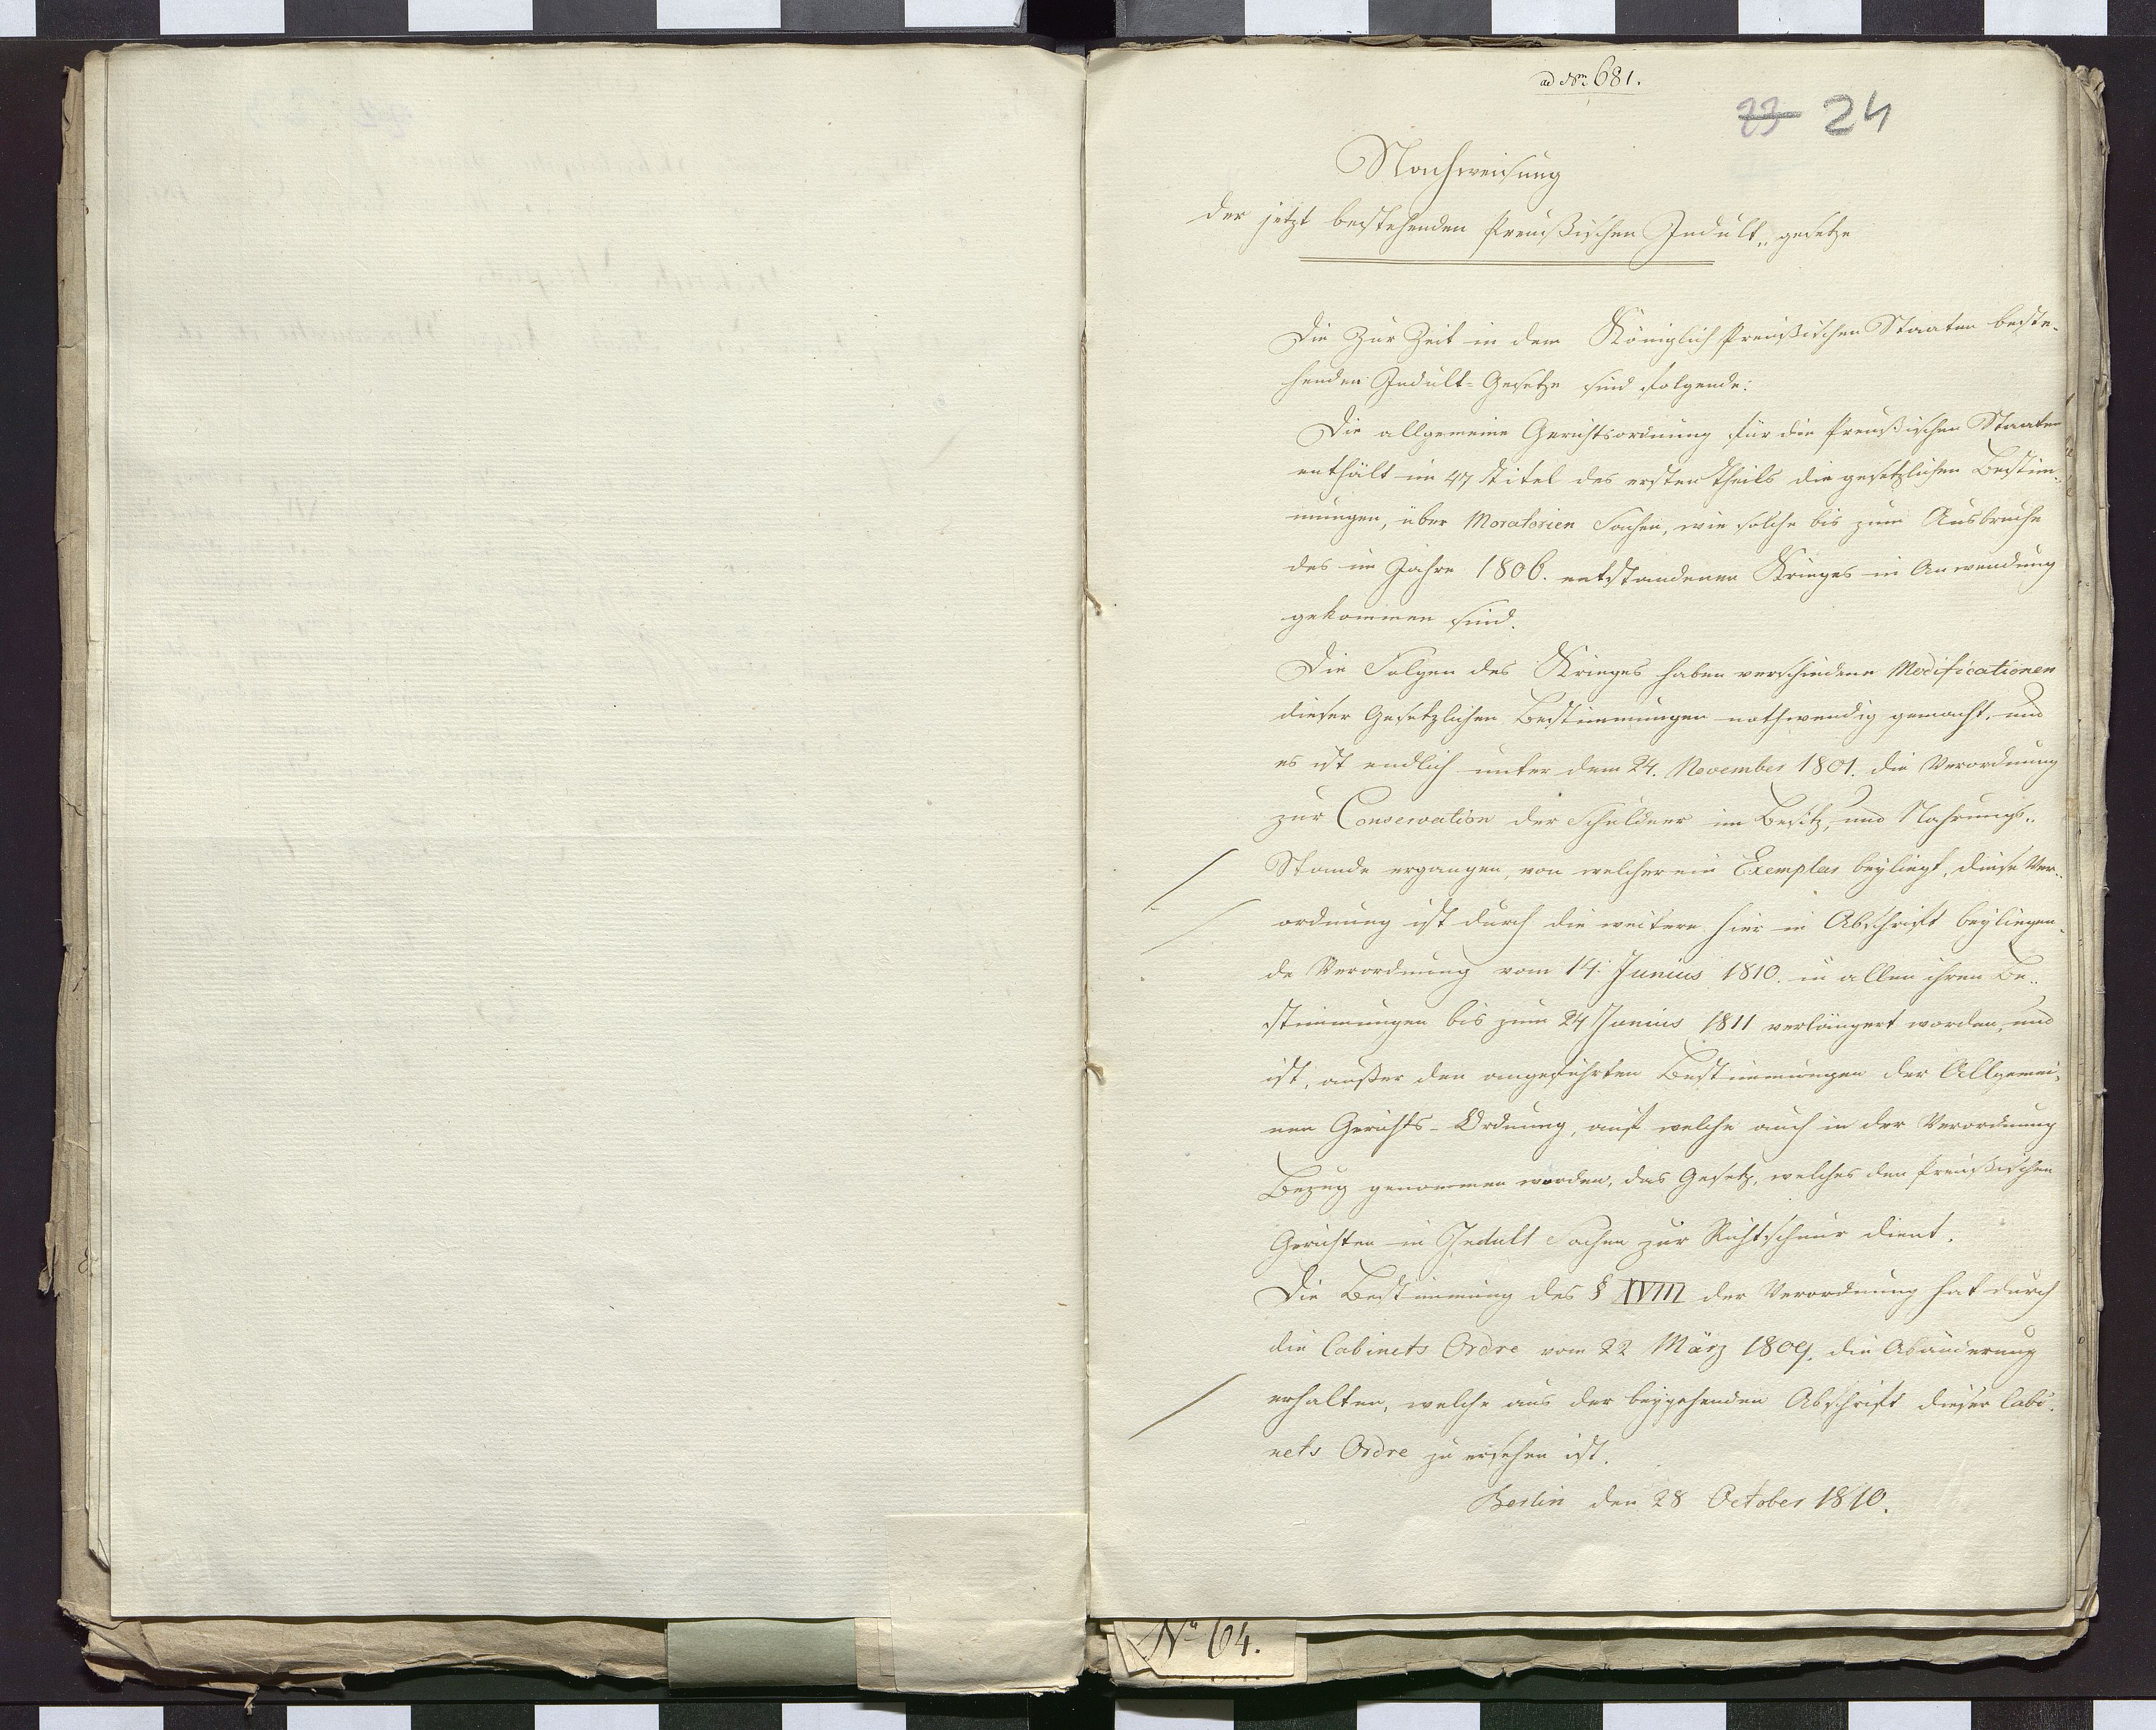 ad Num 681.
23 24
Nachweisung
der jetzt bestehenden Preußischen Indult„gesetze
Die Zur Zeit in dem Königlich Preußischen Staaten beste-
henden Indult-Gesetze sind folgende:
Die allgemeine Gerichtsordnung für die Preußischen Staaten
enthält im 47 Titel des ersten Theils die gesetzlichen Bestim-
mungen, über Moratorien Sachen, wie solche bis zum Ausbruche
des im Jahre 1806. entstandenen Krieges in Anwendung
gekommen sind.
Die Folgen des Krieges haben verschiedene Modificationen
dieser Gesetzlichen Bestimmungen nothwendig gemacht, und
es ist endlich unter dem 24. November 1801. die Verordnung
zur Conservation der Schuldner im Besitz, und Nahrungs„
Stande ergangen, von welcher ein Exemplar beyliegt, diese Ver„
ordnung ist durch die weitere hier in Abschrift beyliegen-
de Verordnung vom 14. Junius 1810. in allen ihren Be„
stimmungen bis zum 24 Junius 1811 verlängert worden, und
ist, außer den angeführten Bestimmungen der Allgemei-
nen Gerichts-Ordnung, auf welche auch in der Verordnung
Bezug genommen worden, das Gesetz, welches den Preußischen
Gerichten in Indult Sachen zur Richtschnur dient.
Die Bestimmung des § XVIII der Verordnung hat durch
die Cabinets Ordre vom 22 März 1809. die Abänderung
erhalten, welche aus der beygehenden Abschrift dieser Cabi-
nets Ordre zu ersehen ist.
Berlin den 28 October 1810.
No 64.